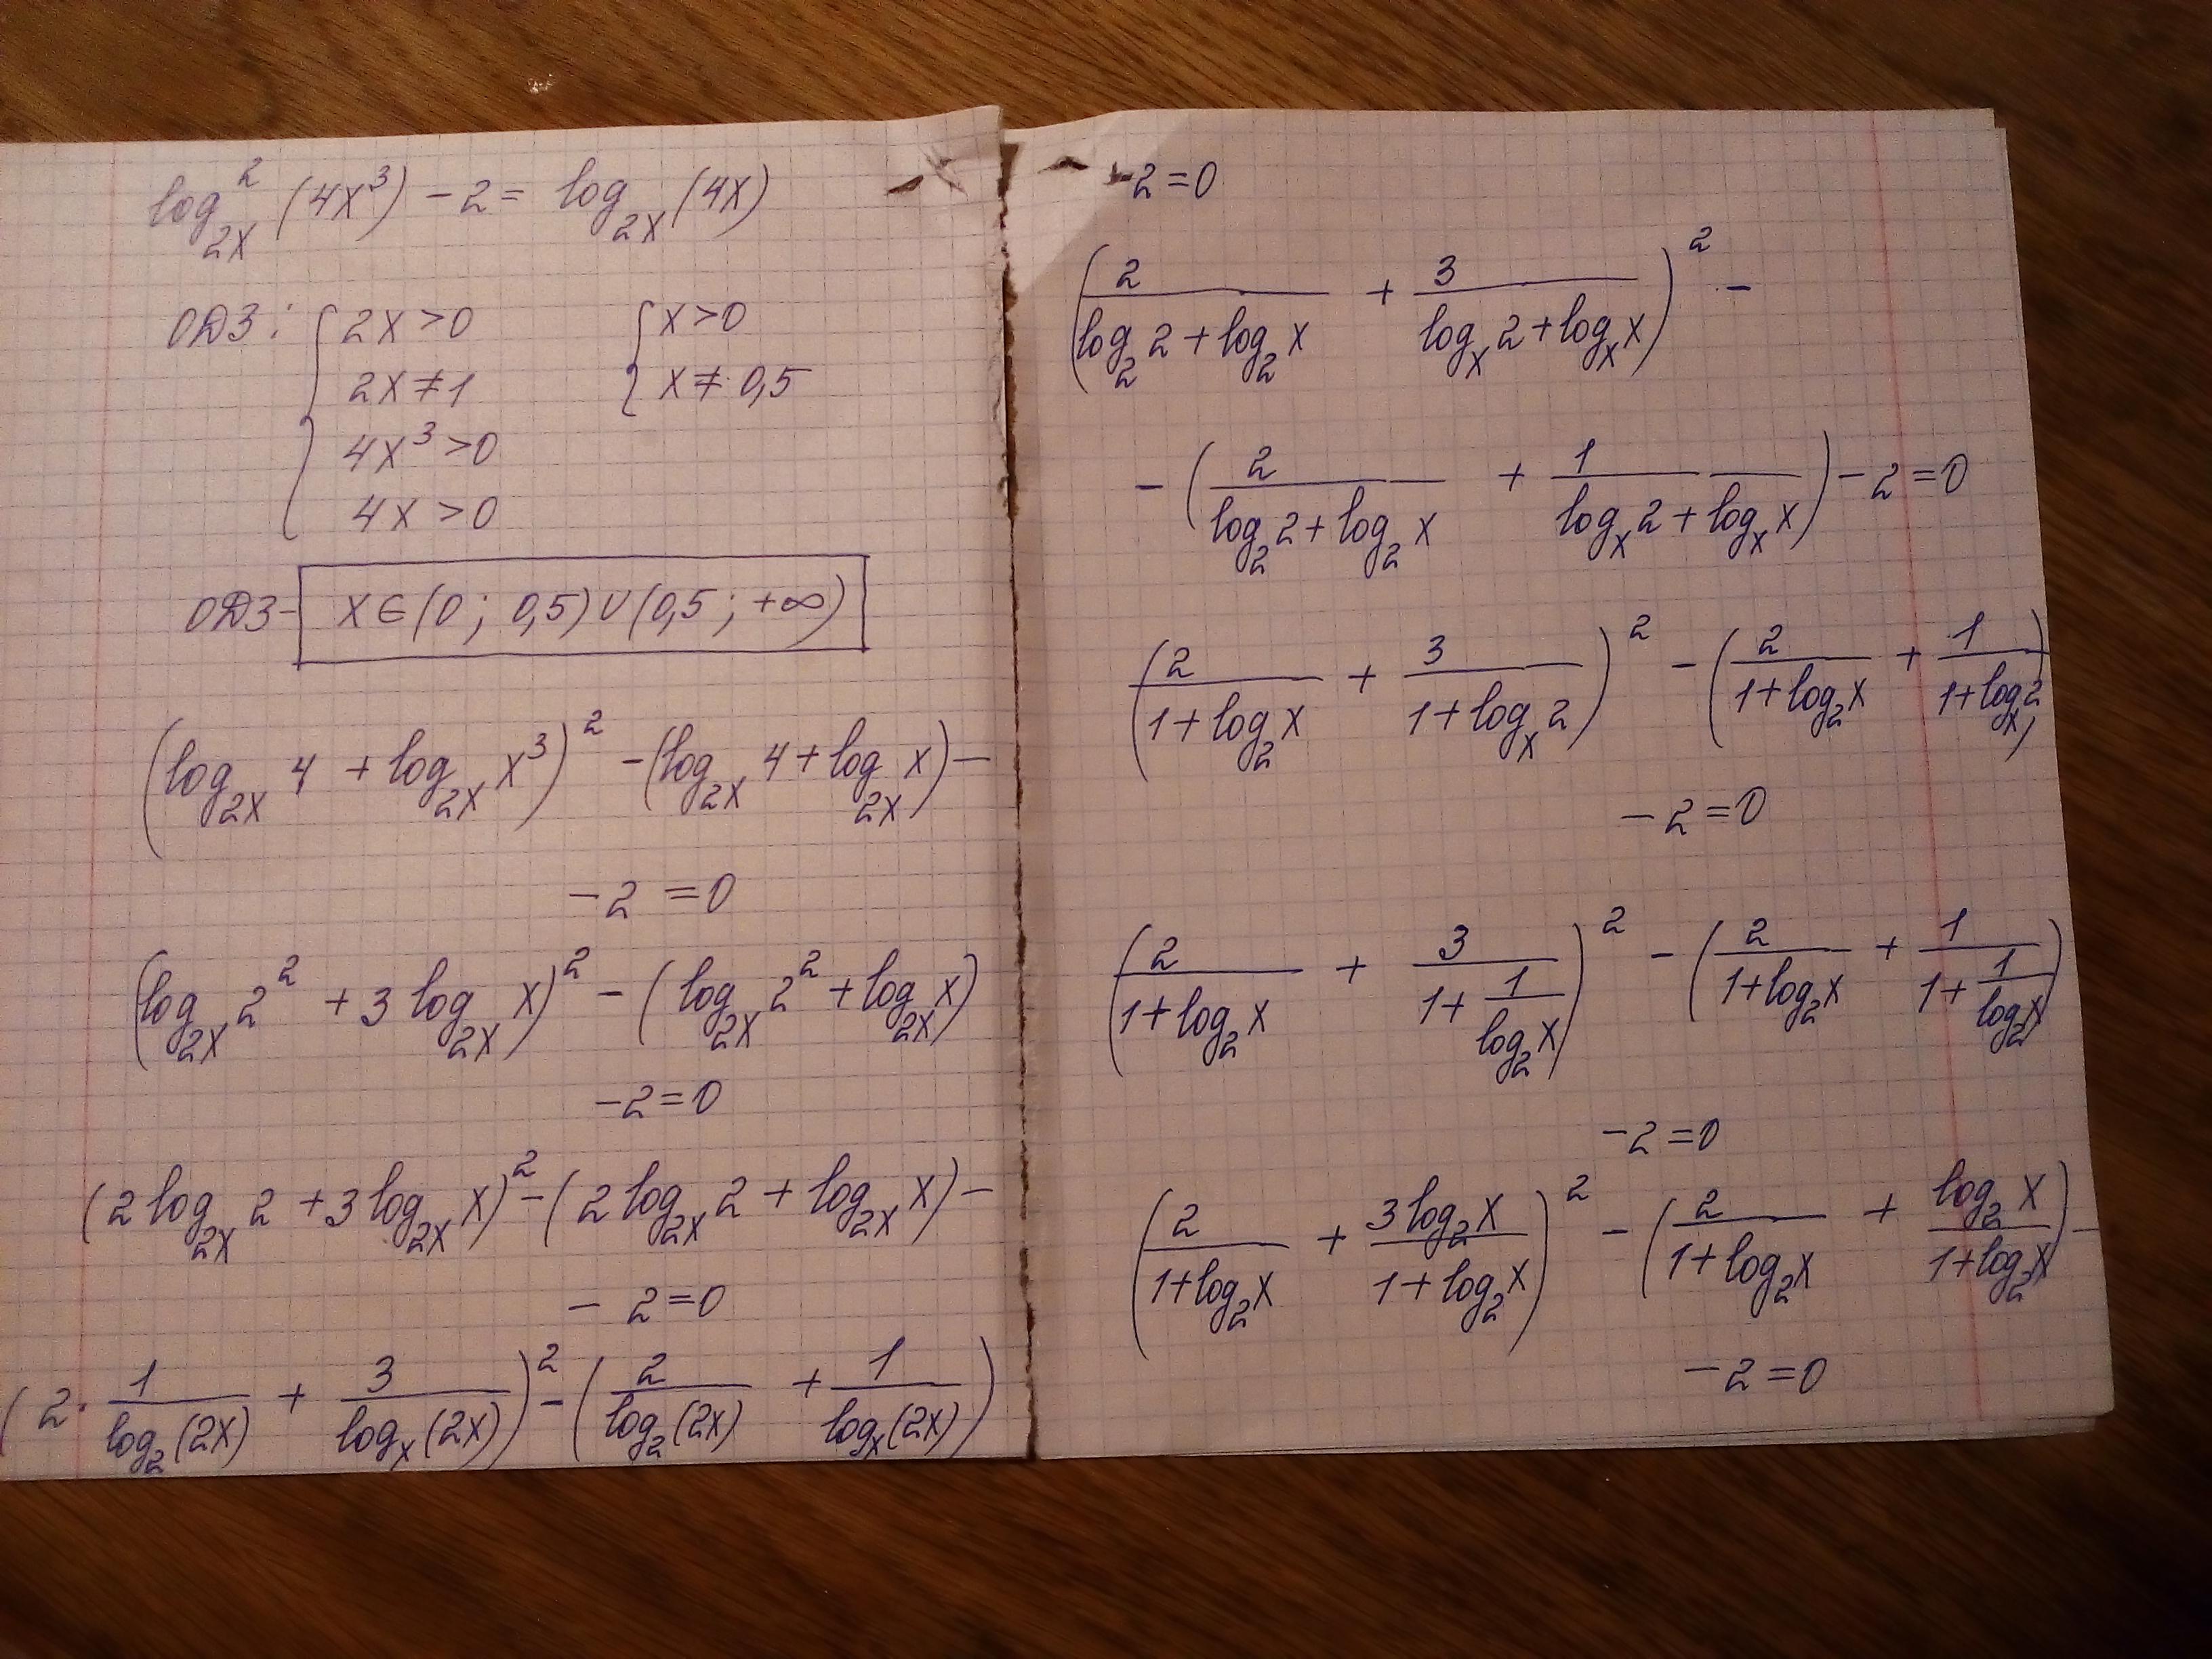 log²_{2x} (4x³) - 2 = log_{2x} (4x)
ОДЗ: { 2x > 0 { x > 0
2x ≠ 1 x ≠ 0,5
4x³ > 0
4x > 0
ОДЗ - x ∈ (0; 0,5) ∪ (0,5; +∞)
(log_{2x} 4 + log_{2x} x³)² - (log_{2x} 4 + log_{2x} x) -
- 2 = 0
(log_{2x} 2² + 3 log_{2x} x)² - (log_{2x} 2² + log_{2x} x)
- 2 = 0
(2 log_{2x} 2 + 3 log_{2x} x)² - (2 log_{2x} 2 + log_{2x} x) -
- 2 = 0
(2 · 1/(log_2 (2x)) + 3/(log_x (2x)))² - (2/(log_2 (2x)) + 1/(log_x (2x)))
- 2 = 0
(2/(log_2 2 + log_2 x) + 3/(log_x 2 + log_x x))² -
- (2/(log_2 2 + log_2 x) + 1/(log_x 2 + log_x x)) - 2 = 0
(2/(1 + log_2 x) + 3/(1 + log_x 2))² - (2/(1 + log_2 x) + 1/(1 + log_x 2))
- 2 = 0
(2/(1 + log_2 x) + 3/(1 + 1/(log_2 x)))² - (2/(1 + log_2 x) + 1/(1 + 1/(log_2 x)))
- 2 = 0
(2/(1 + log_2 x) + (3 log_2 x)/(1 + log_2 x))² - (2/(1 + log_2 x) + (log_2 x)/(1 + log_2 x)) -
- 2 = 0